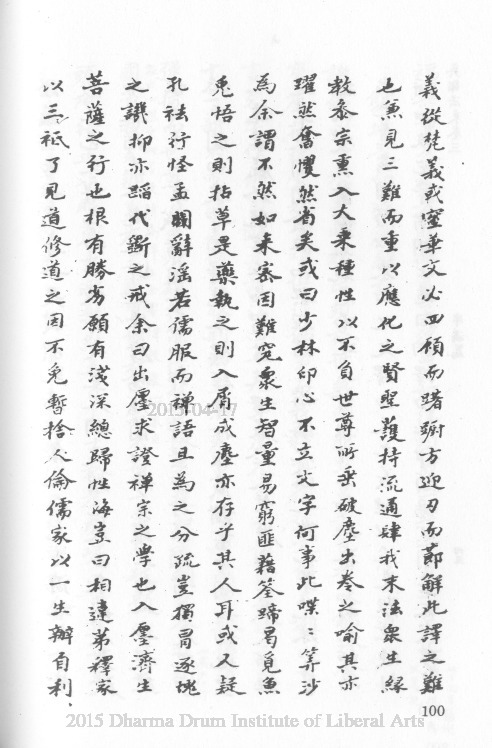 義從梵義或窒華文必四顧而躇硎方迎刃而節解此譯之難
也兼見三難而重以應化之賢聖護持流通肆我末法眾生緣
教叅宗熏入大乘種性以不負世尊所垂破塵出卷之喻其亦
躍然奮懼然省矣或曰少林印心不立文字何事此喋〻筭沙
為余謂不然如來密因難究眾生智量易窮匪藉筌蹄曷覓魚
兔悟之則拈草是藥執之則入屑成塵亦存乎其人耳或又疑
孔袪行怪孟闢辭淫若儒服而禪語且為之分疏豈獨冐逐塊
之譏抑亦蹈代斲之戒余曰出廛求證禪宗之學也入廛濟生
菩薩之行也根有勝劣願有淺深總歸性海豈曰相違第釋家
以三祇了見道修道之因不免暫捨人倫儒家以一生辦自利
100
2015-04-17
2015 Dharma Drum Institute of Liberal Arts